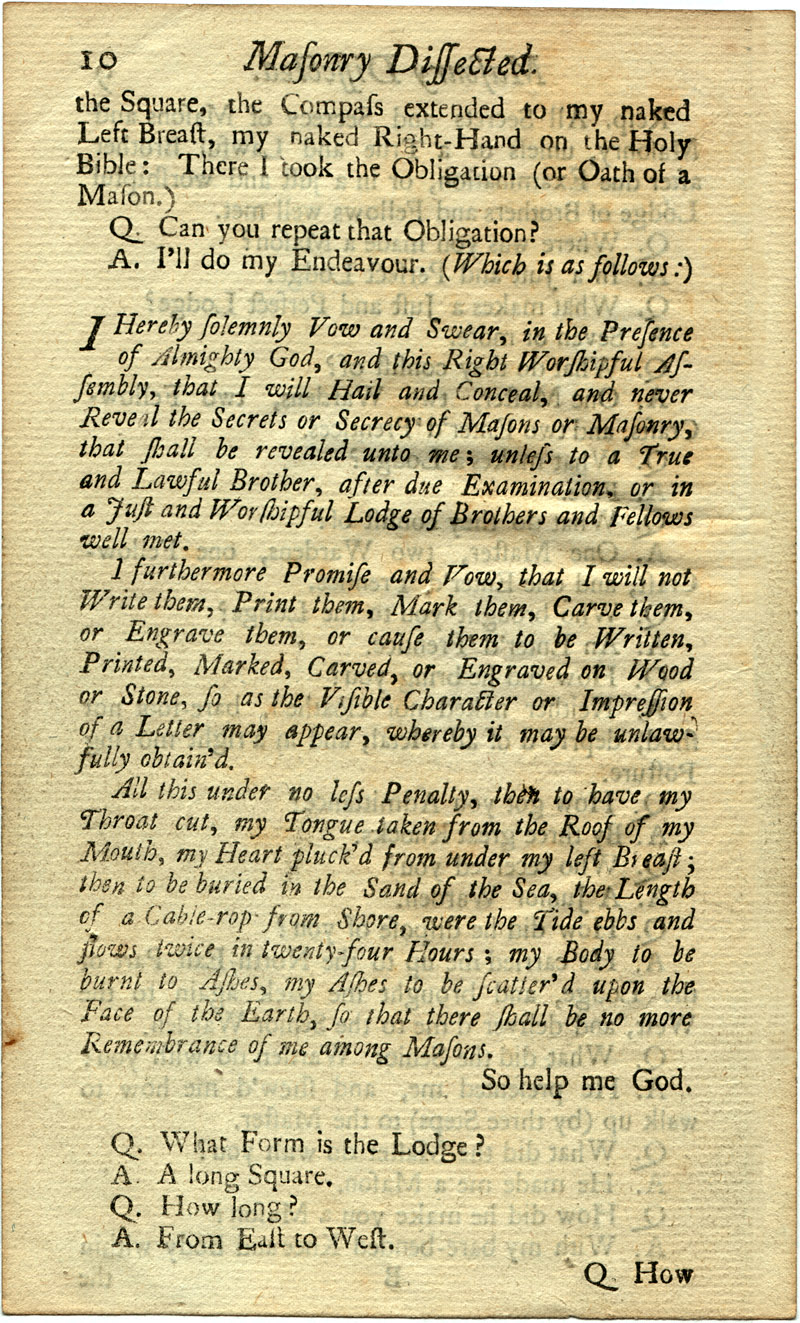 10 Maſonry Diſſected.
the Square, the Compaſs extended to my naked
Left Breaſt, my naked Right-Hand on the Holy
Bible: There I took the Obligation (or Oath of a
Maſon.)
Q. Can you repeat that Obligation?
A. I'll do my Endeavour. (Which is as follows:)
I Hereby ſolemnly Vow and Swear, in the Preſence
of Almighty God, and this Right Worſhipful Aſ-
ſembly, that I will Hail and Conceal, and never
Reveal the Secrets or Secrecy of Maſons or Maſonry,
that ſhall be revealed unto me; unleſs to a True
and Lawful Brother, after due Examination, or in
a Juſt and Worſhipful Lodge of Brothers and Fellows
well met.
I furthermore Promiſe and Vow, that I will not
Write them, Print them, Mark them, Carve them,
or Engrave them, or cauſe them to be Written,
Printed, Marked, Carved, or Engraved on Wood
or Stone, ſo as the Viſible Character or Impreſſion
of a Letter may appear, whereby it may be unlaw-
fully obtain'd.
All this under no leſs Penalty, then to have my
Throat cut, my Tongue taken from the Roof of my
Mouth, my Heart pluck'd from under my left Breaſt;
then to be buried in the Sand of the Sea, the Length
of a Cable-rop from Shore, were the Tide ebbs and
flows twice in twenty-four Hours; my Body to be
burnt to Aſhes, my Aſhes to be ſcatter'd upon the
Face of the Earth, ſo that there ſhall be no more
Remembrance of me among Maſons.
So help me God.
Q. What Form is the Lodge?
A. A long Square.
Q. How long?
A. From Eaſt to Weſt.
Q. How